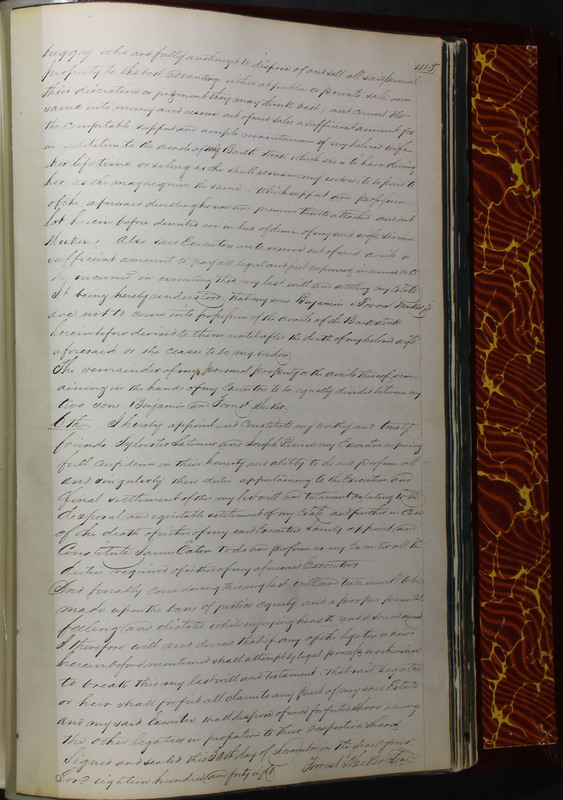 115
buggy who are fully authorized to dispose of and sell all said personal
property to the best advantage either at public or private sale as in
their discretion or judgment they may think best. and convert the
same into money and reserve out of said sales a sufficient amount for
the comfortable support and ample maintainance of my beloved wife
in addition to the avails of my Bank Stock which she is to have during
her lifetime or so long as she shall remain my widow to be paid to
her as she may require the same. Which support and possession
of the aforesaid dwelling house and premises thereto attached and out
lot herein before devised are in lieu of dower of my said wife
Meeker. Also said Executors are to reserve out of said avails a
sufficient amount to pay all legal and just expenses incurred or to
be incurred in executing this my last will and settling my Estate
It being hereby understood that my sons Benjamin & Forrest Meeker
are not to come into possession of the avails of the Bank Stock
herein before devised to them until after the death of my beloved wife
aforesaid or she cease to be my widow
The remainder of my personal property or the avails thereof rem-
aining in the hands of my Executors to be equally divided between my
two sons Benjamin and Forrest Meeker.
6th I hereby appoint and Constitute my worthy and trusty
friends Sylvester Latimer and Joseph my Executors reposing
full confidence in their honesty and ability to do and perform all
and singularly their duties appertaining to the Execution and
final settlement of this my last will and testament relating to the
disposal and equitable settlement of my Estate and further in case
of the death of either of my said Executors I hereby appoint and
Constitute James Eaton to do and perform as my Executor all the
duties required of either of my aforesaid Executors
And finally considering this my last will and testament to be
made upon the basis of justice equity and a proper parental
feeling and dictated while enjoying health and a sound mind
I therefore will and desire that if any of the legatees or heirs
hereinbefore mentioned shall attempt by legal process or otherwise
to break this my last will and testament. That said legatee
or heir shall forfeit all claim to any part of my said Estate
and my said Executors shall dispose of said forfeited share among
the other legatees in proportion to their respective shares
Signed and sealed this 30th day of November in the year of our
Lord eighteen hundred and forty eight Forrest Meeker Seal